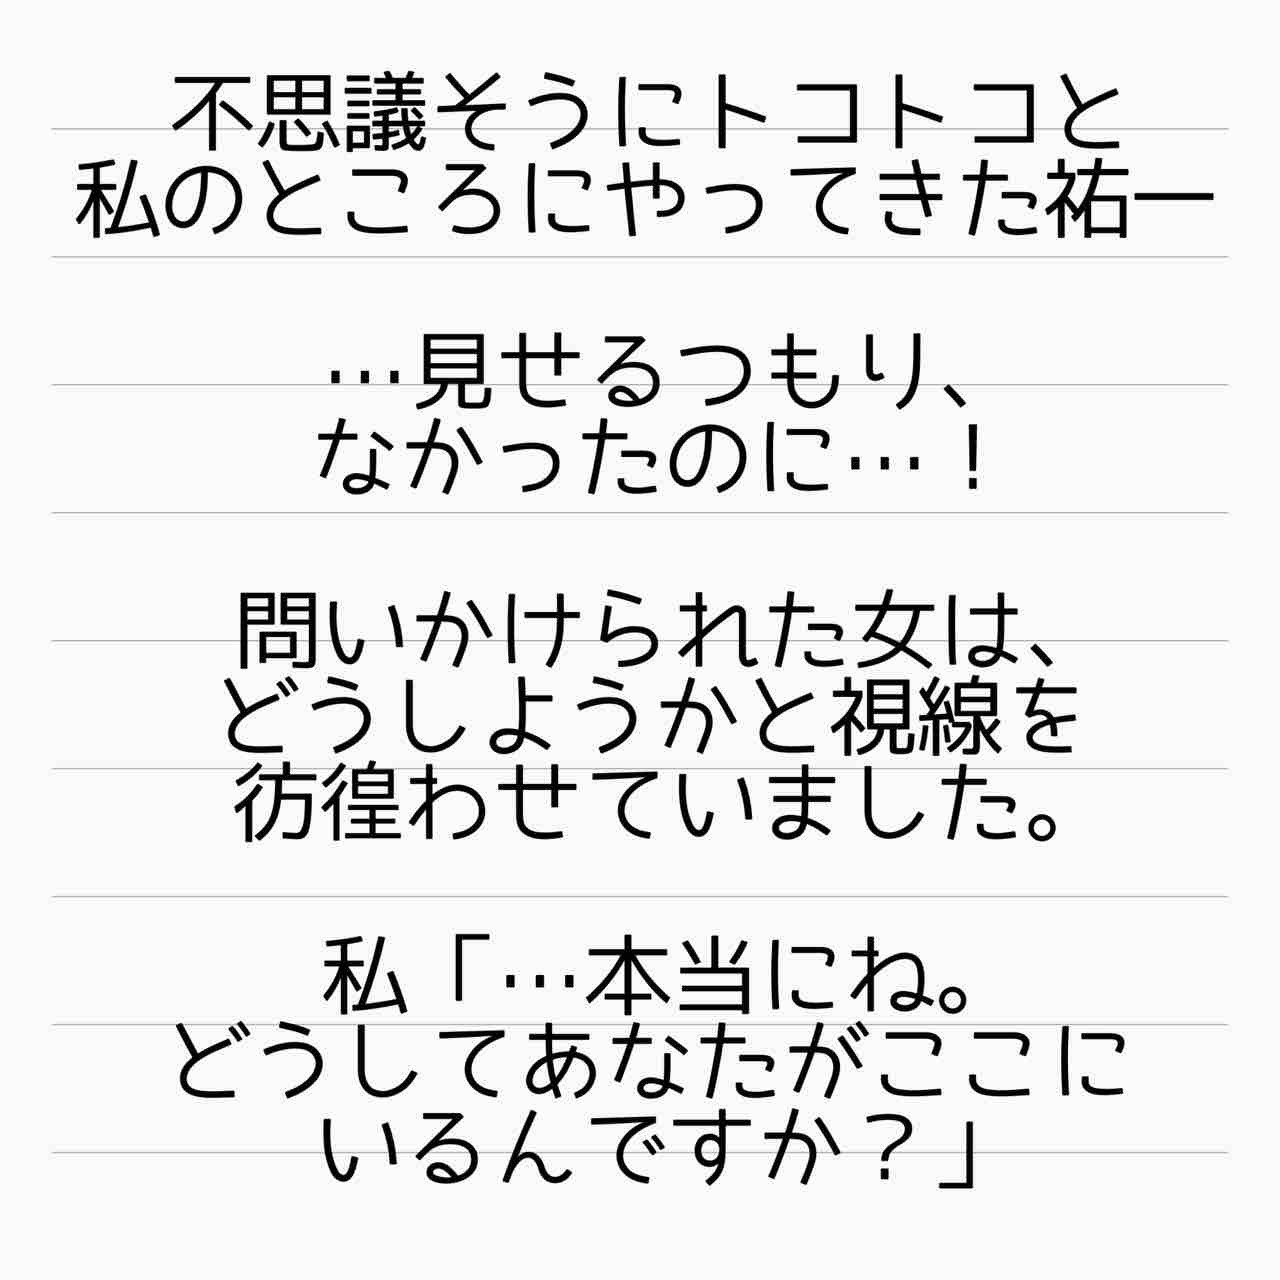 不思議そうにトコトコと
私のところにやってきた祐一
…見せるつもり、
なかったのに…！
問いかけられた女は、
どうしようかと視線を
彷徨わせていました。
私「…本当にね。
どうしてあなたがここに
いるんですか？」